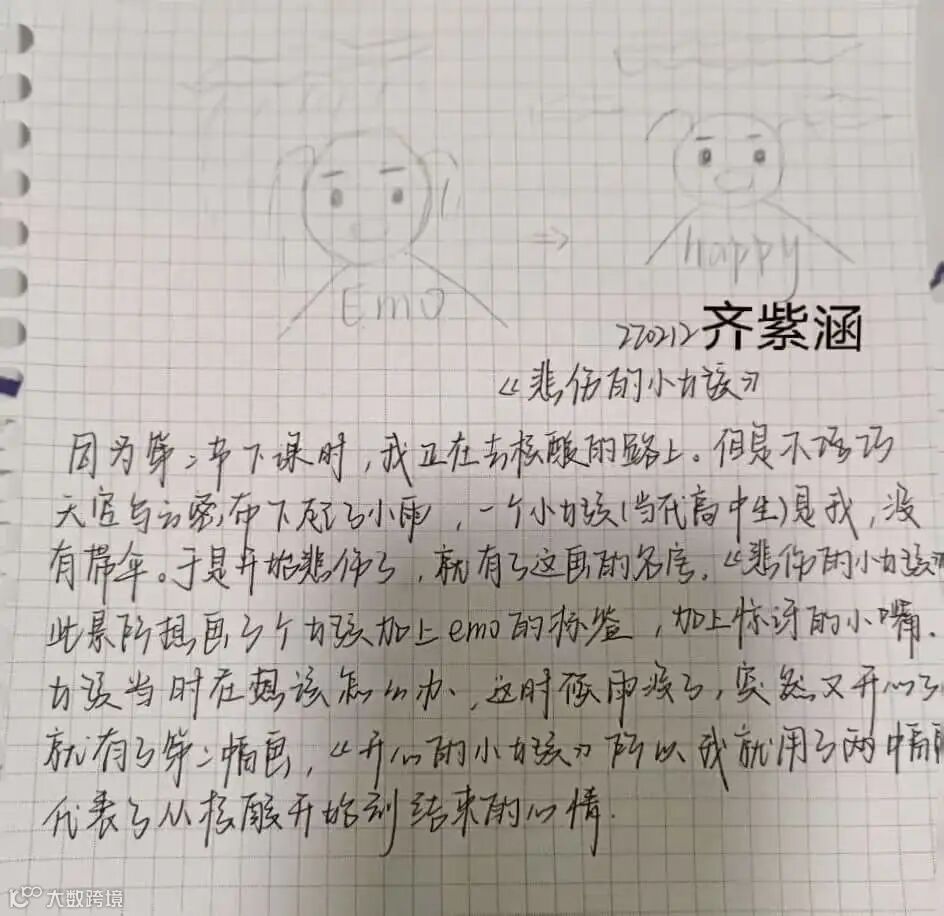 Emo
⇒
Happy
220212 齐紫涵
《悲伤的小女孩》
因为第二节下课时,我正在去核酸的路上。但是不凑巧
天空乌云密布下起了小雨,一个小女孩(当代高中生)是我,没
有带伞。于是开始悲伤了,就有了这画的名字,《悲伤的小女孩》
此景所想画了个女孩加上emo的标签,加上惊讶的小嘴.
女孩当时在想该怎么办、这时候雨没了,突然又开心了
就有了第二幅画,《开心的小女孩》所以我就用了两幅画
代表了从核酸开始到结束的心情.
大数跨境